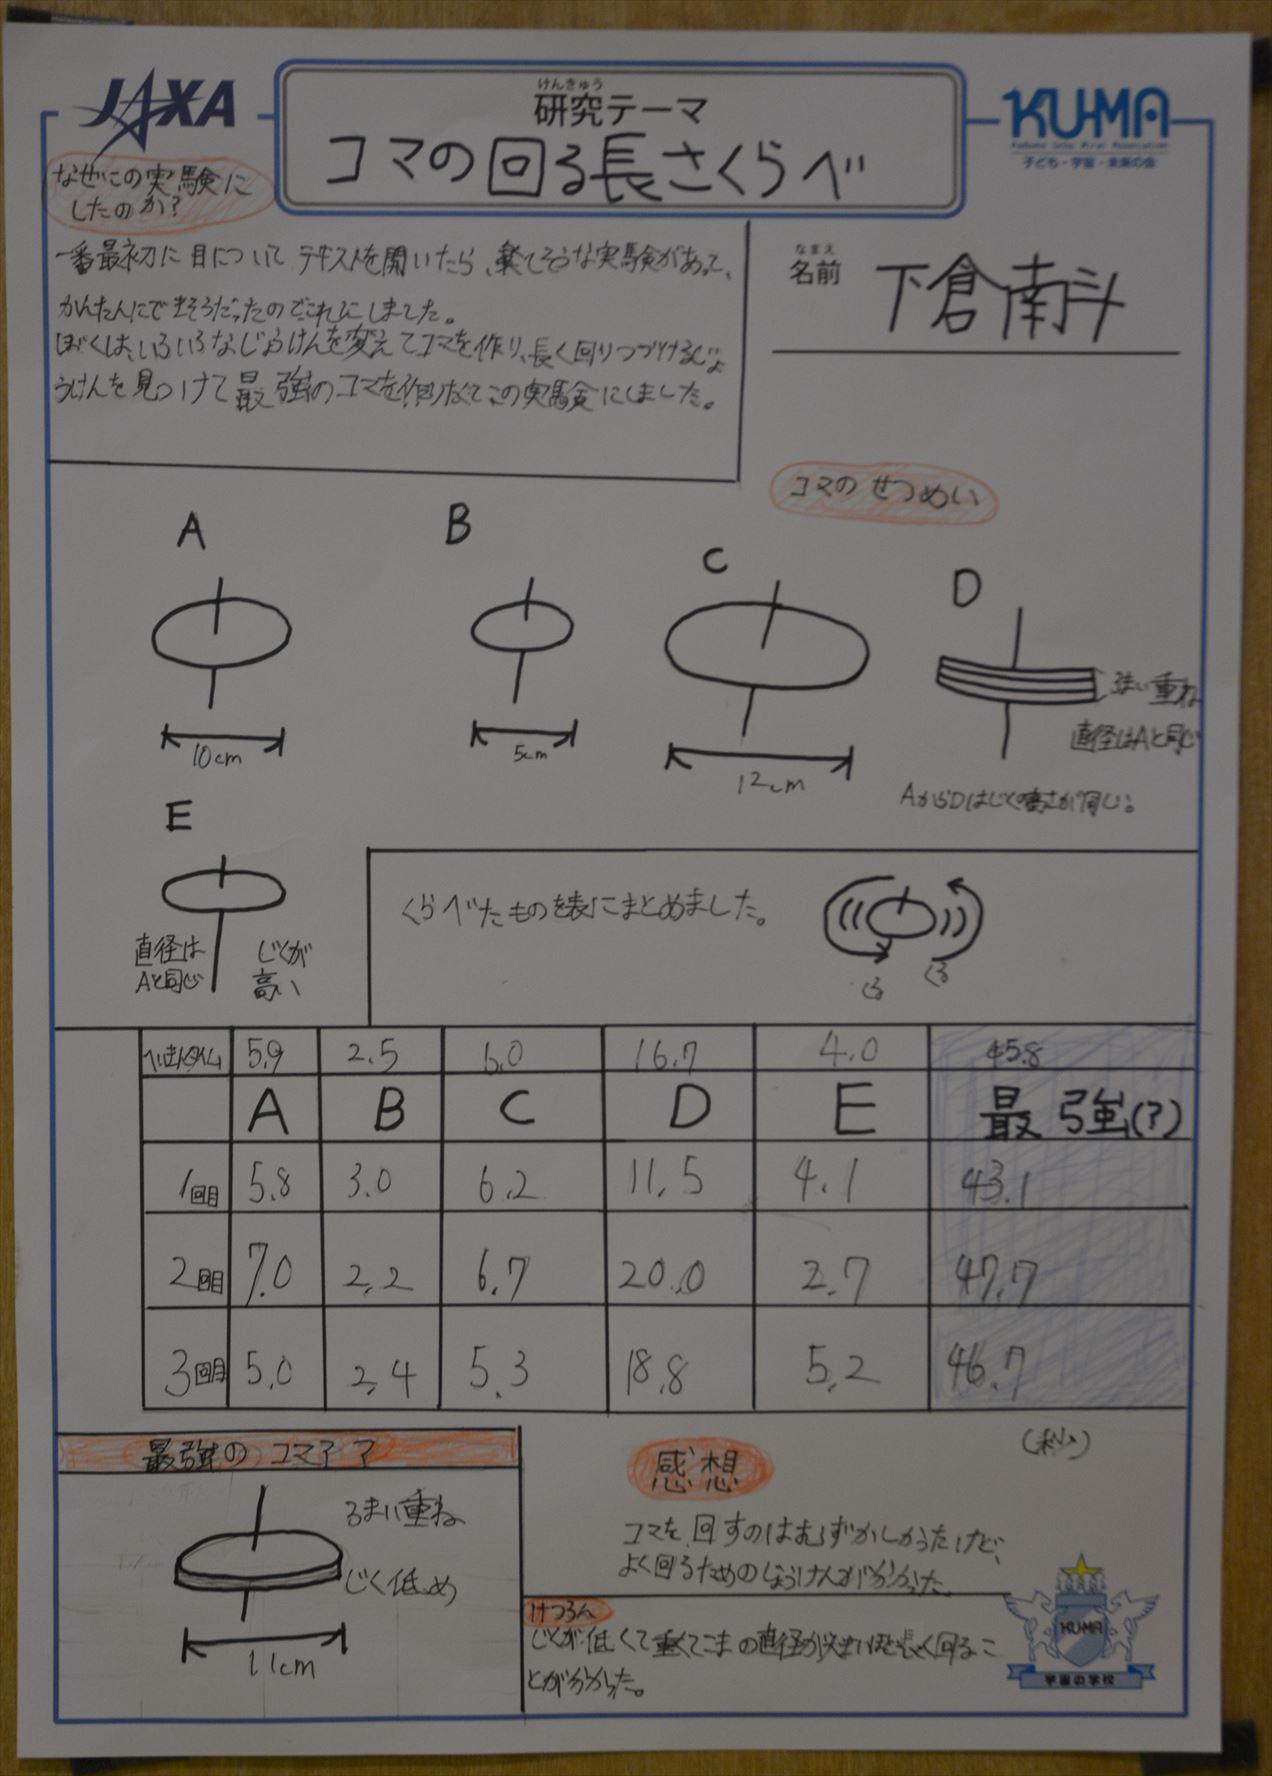 JAXA
けんきゅう
研究テーマ
コマの回る長さくらべ
KU-MA
Kodomo Uchu Mirai Association
子ども・宇宙・未来の会
なぜこの実験に
したのか?
一番最初に目についてテキストを開いたら、楽しそうな実験があって、
かんたんにできそうだったのでこれにしました。
ぼくは、いろいろなじょうけんを変えてコマを作り、長く回りつづけるじょ
うけんを見つけて最強のコマを作りたくてこの実験にしました。
なまえ
名前
下倉南斗
コマのせつめい
A
B
C
D
10cm
5cm
12cm
3まい重ね
直径はAと同じ
AからDはじくの高さが同じ。
E
直径は
Aと同じ
じくが
高い
くらべたものを表にまとめました。
くる
くる
へいきんタイム 5.9 2.5 6.0 16.7 4.0 45.8
A B C D E 最強(?)
1回目 5.8 3.0 6.2 11.5 4.1 43.1
2回目 7.0 2.2 6.7 20.0 2.7 47.7
3回目 5.0 2.4 5.3 18.8 5.2 46.7
(秒)
最強のコマ??
3まい重ね
じく低め
11cm
感想
コマを回すのはむずかしかったけど、
よく回るためのじょうけんが分かった。
けつろん
じくが低くて重くてこまの直径が大きいほど長く回るこ
とが分かった。
KU-MA
宇宙の学校